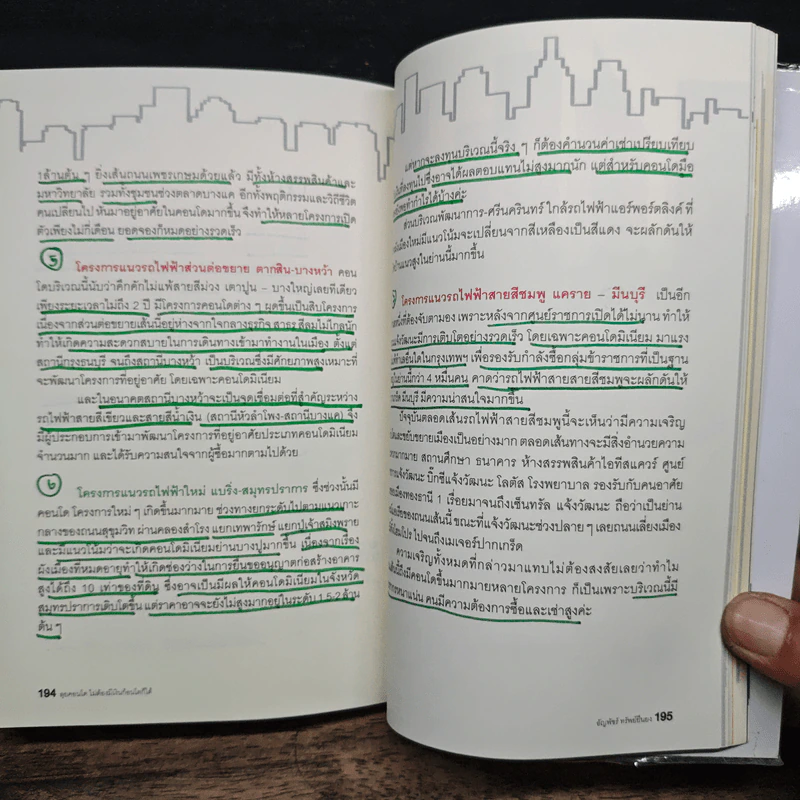 1ล้านต้น ๆ ยิ่งเส้นถนนเพชรเกษมด้วยแล้ว มีทั้งห้างสรรพสินค้าและ
มหาวิทยาลัย รวมทั้งชุมชนช่วงตลาดบางแค อีกทั้งพฤติกรรมและวิถีชีวิต
คนเปลี่ยนไป หันมาอยู่อาศัยในคอนโดมากขึ้น จึงทำให้หลายโครงการเปิด
ตัวเพียงไม่กี่เดือน ยอดจองก็หมดอย่างรวดเร็ว
5
โครงการแนวรถไฟฟ้าส่วนต่อขยาย ตากสิน-บางหว้า คอน
โดบริเวณนี้นับว่าคึกคักไม่แพ้สายสีม่วง เตาปูน – บางใหญ่เลยทีเดียว
เพียงระยะเวลาไม่ถึง 2 ปี มีโครงการคอนโดต่าง ๆ ผุดขึ้นเป็นสิบโครงการ
เนื่องจากส่วนต่อขยายเส้นนี้อยู่ห่างจากใจกลางธุรกิจ สาธร สีลมไม่ไกลนัก
ทำให้เกิดความสะดวกสบายในการเดินทางเข้ามาทำงานในเมือง ตั้งแต่
สถานีกรุงธนบุรี จนถึงสถานีบางหว้า เป็นบริเวณซึ่งมีศักยภาพสูงเหมาะที่
จะพัฒนาโครงการที่อยู่อาศัย โดยเฉพาะคอนโดมิเนียม
และในอนาคตสถานีบางหว้าจะเป็นจุดเชื่อมต่อที่สำคัญระหว่าง
รถไฟฟ้าสายสีเขียวและสายสีน้ำเงิน (สถานีหัวลำโพง-สถานีบางแค) จึง
มีผู้ประกอบการเข้ามาพัฒนาโครงการที่อยู่อาศัยประเภทคอนโดมิเนียม
จำนวนมาก และได้รับความสนใจจากผู้ซื้อมากตามไปด้วย
6
โครงการแนวรถไฟฟ้าใหม่ แบริ่ง-สมุทรปราการ ซึ่งช่วงนั้นมี
คอนโด โครงการใหม่ ๆ เกิดขึ้นมากมาย ช่วงทางยกระดับไปตามแนวเกาะ
กลางของถนนสุขุมวิท ผ่านคลองสำโรง แยกเทพารักษ์ แยกปู่เจ้าสมิงพราย
และมีแนวโน้มว่าจะเกิดคอนโดมิเนียมย่านบางปูมากขึ้น เนื่องจากเรื่อง
ผังเมืองที่หมดอายุทำให้เกิดช่องว่างในการยื่นขออนุญาตก่อสร้างอาคาร
สูงได้ถึง 10 เท่าของที่ดิน ซึ่งอาจเป็นมีผลให้คอนโดมิเนียมในจังหวัด
สมุทรปราการเติบโตขึ้น แต่ราคาอาจจะยังไม่สูงมากอยู่ในระดับ 1.5-2 ล้าน
ต้น ๆ
194 ลุยคอนโด ไม่ต้องมีเงินก้อนโตก็ได้
แต่หากจะลงทุนบริเวณนี้จริง ๆ ก็ต้องคำนวนค่าเช่าเปรียบเทียบ
เงินที่ลงทุนไปซึ่งอาจได้ผลตอบแทนไม่สูงมากนัก แต่สำหรับคอนโดมือ
พอทำกำไรได้บ้างค่ะ
ส่วนบริเวณพัฒนาการ-ศรีนครินทร์ ใกล้รถไฟฟ้าแอร์พอร์ตลิงค์ ที่
เมืองใหม่มีแนวโน้มจะเปลี่ยนจากสีเหลืองเป็นสีแดง จะผลักดันให้
แนวสูงในย่านนี้มากขึ้น
โครงการแนวรถไฟฟ้าสายสีชมพู แคราย – มีนบุรี เป็นอีก
ที่ต้องจับตามอง เพราะหลังจากศูนย์ราชการเปิดได้ไม่นาน ทำให้
แจ้งวัฒนะมีการเติบโตอย่างรวดเร็ว โดยเฉพาะคอนโดมิเนียม มาแรง
ย่านอื่นใดในกรุงเทพฯ เพื่อรองรับกำลังซื้อกลุ่มข้าราชการที่เป็นฐาน
ย่านนี้กว่า 4 หมื่นคน คาดว่ารถไฟฟ้าสายสายสีชมพูจะผลักดันให้
มีนบุรี มีความน่าสนใจมากขึ้น
ปัจจุบันตลอดเส้นรถไฟฟ้าสายสีชมพูนี้จะเห็นว่ามีความเจริญ
และขยับขยายเมืองเป็นอย่างมาก ตลอดเส้นทางจะมีสิ่งอำนวยความ
มากมาย สถานศึกษา ธนาคาร ห้างสรรพสินค้าไอทีสแควร์ ศูนย์
แจ้งวัฒนะ บิ๊กซีแจ้งวัฒนะ โลตัส โรงพยาบาล รองรับกับคนอาศัย
เมืองทองธานี 1 เรื่อยมาจนถึงเซ็นทรัล แจ้งวัฒนะ ถือว่าเป็นย่าน
ของถนนเส้นนี้ ขณะที่แจ้งวัฒนะช่วงปลาย ๆ เลยถนนเลี่ยงเมือง
ไป ไปจนถึงเมเจอร์ปากเกร็ด
ความเจริญทั้งหมดที่กล่าวมาแทบไม่ต้องสงสัยเลยว่าทำไม
นี้ถึงมีคอนโดขึ้นมากมายหลายโครงการ ก็เป็นเพราะบริเวณนี้มี
หนาแน่น คนมีความต้องการซื้อและเช่าสูงค่ะ
195